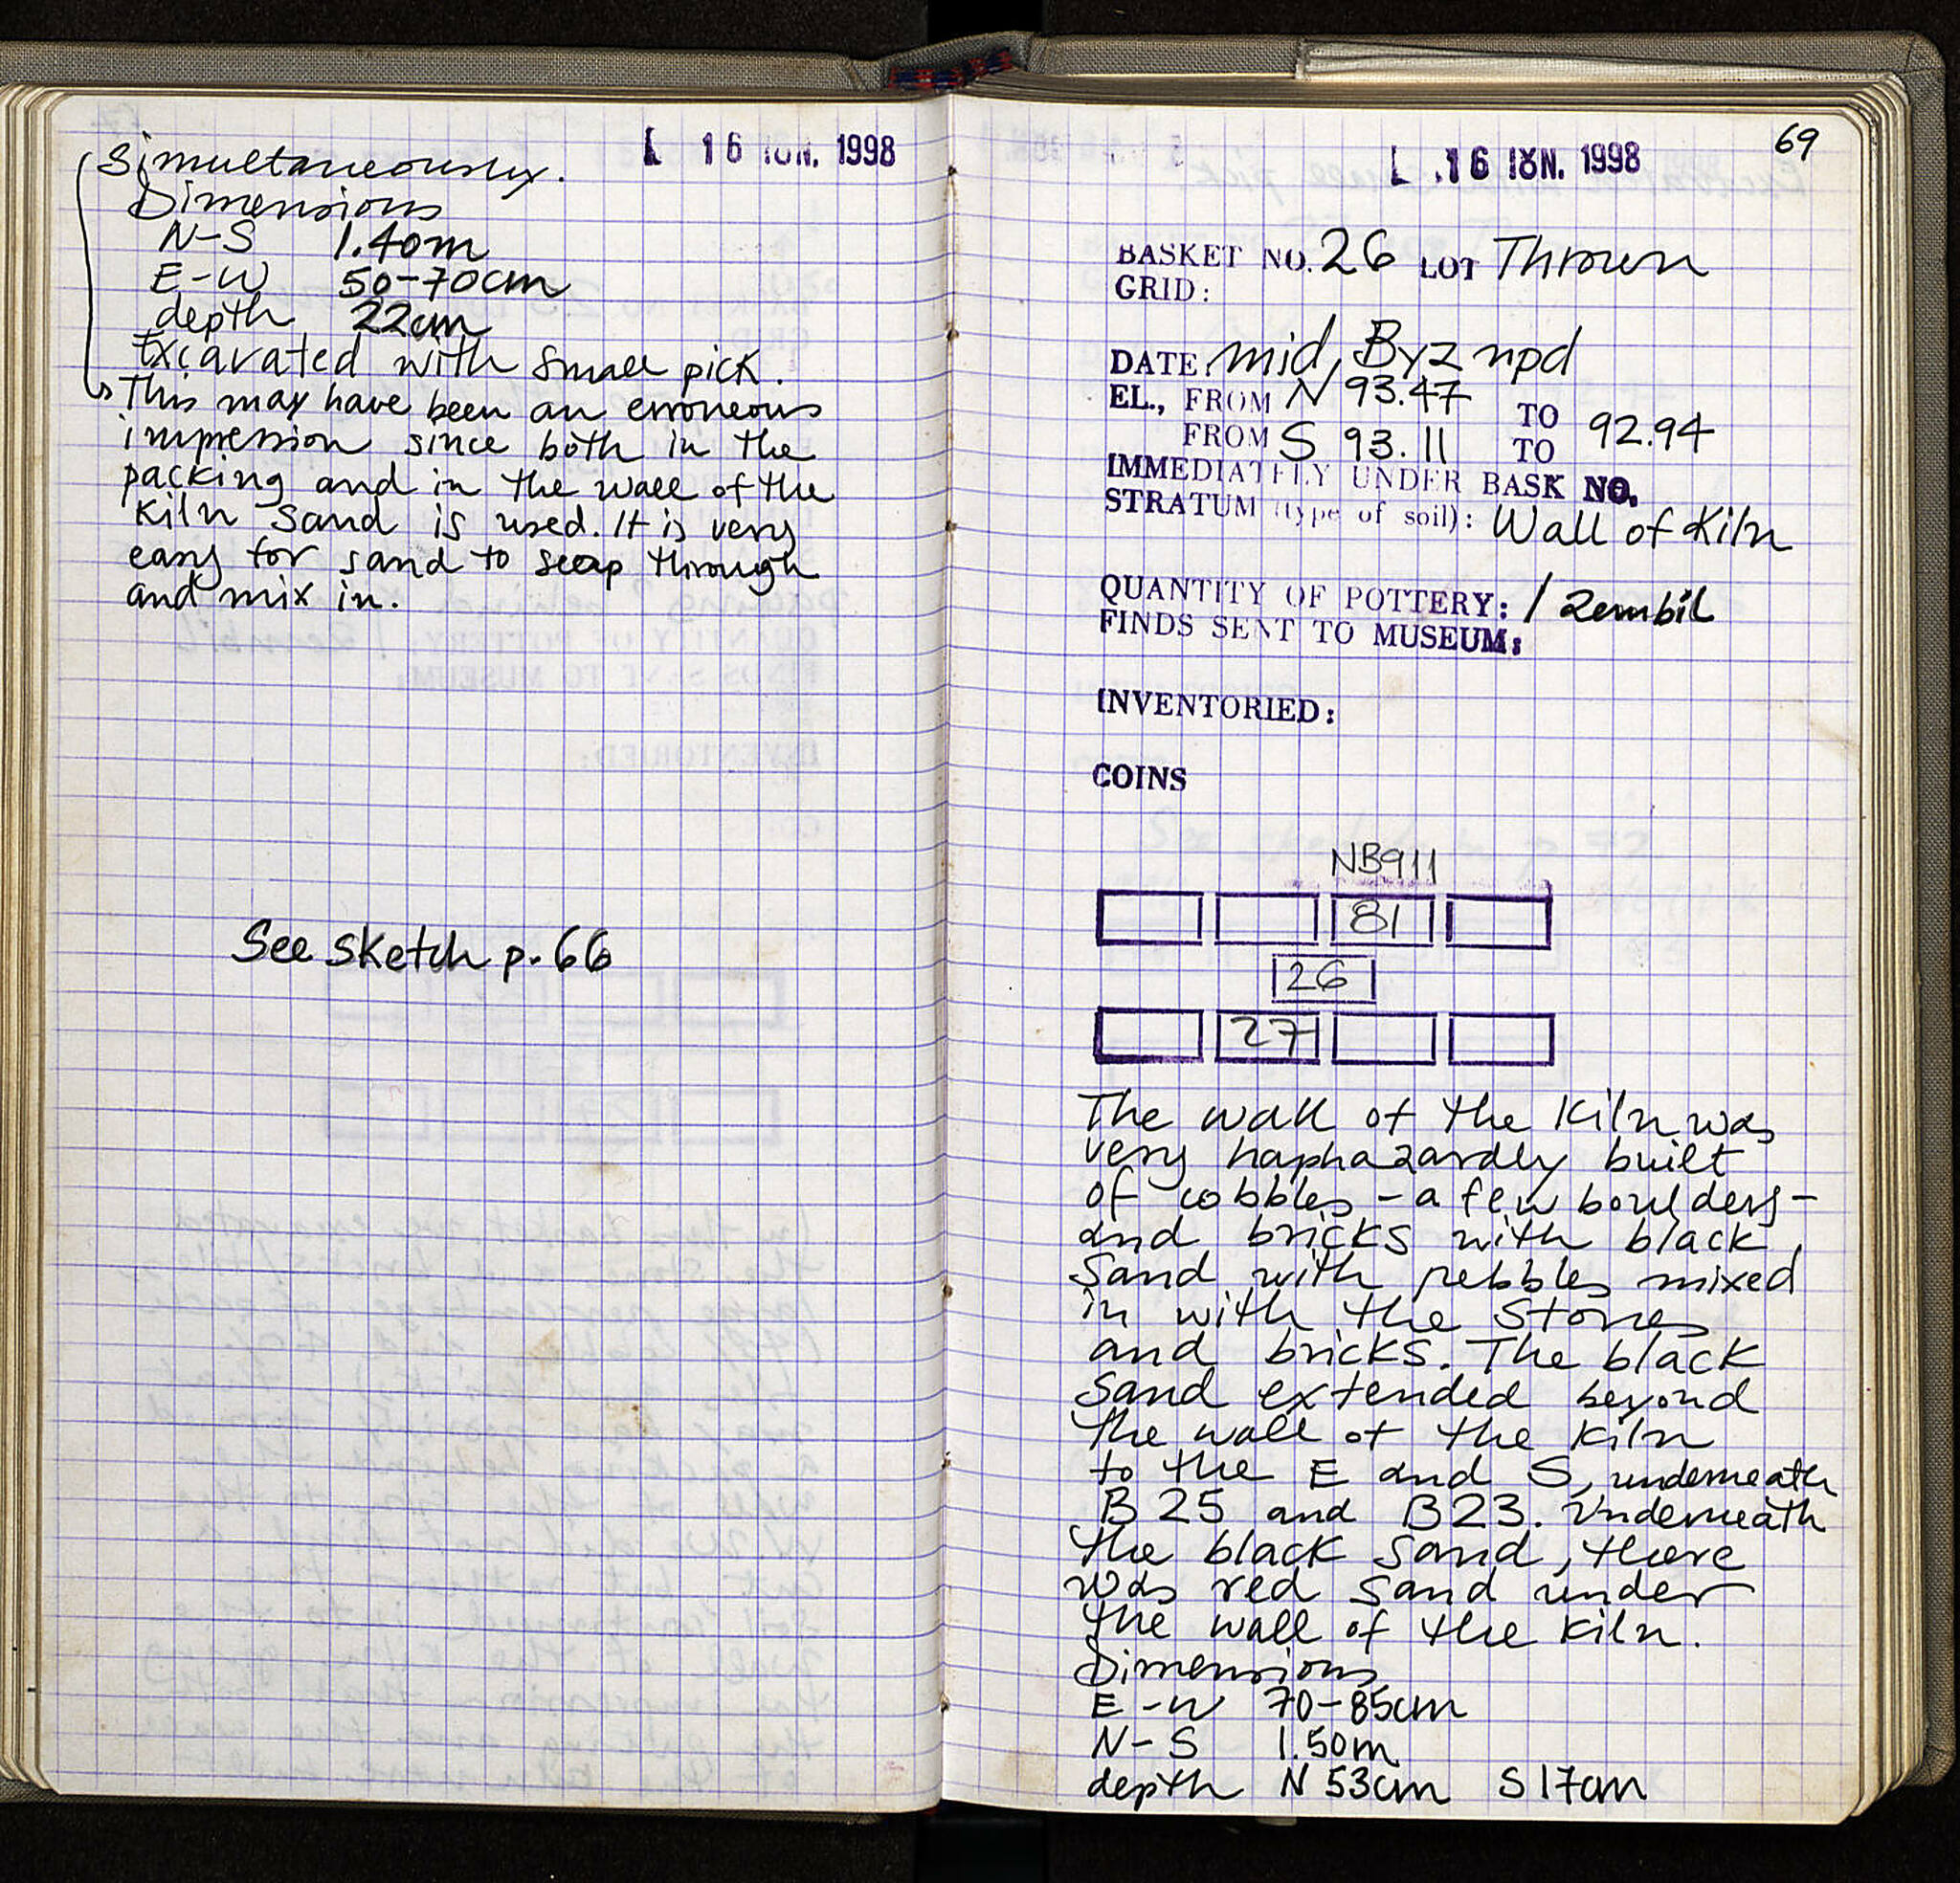 16 ΙΟΝ. 1998
Simultaneously.
Dimensions
N-S 1.40m
E-W 50-70cm
depth 22cm
Excavated with small pick.
This may have been an erroneous
impression since both in the
packing and in the wall of the
kiln sand is used. It is very
easy for sand to seap through
and mix in.
See sketch p. 66
69
16 ΙΟΝ. 1998
BASKET NO. 26 LOT Thrown
GRID:
DATE mid, Byz npd
EL., FROM N 93.47 TO 92.94
FROM S 93.11 TO
IMMEDIATELY UNDER BASK NO.
STRATUM (type of soil): Wall of Kiln
QUANTITY OF POTTERY: 1 zembil
FINDS SENT TO MUSEUM:
INVENTORIED:
COINS
NB911
81
26
27
The wall of the Kiln was
very haphazardly built
of cobbles - a few boulders -
and bricks with black
sand with pebbles mixed
in with the stones
and bricks. The black
sand extended beyond
the wall of the kiln
to the E and S, underneath
B25 and B23. Underneath
the black sand, there
was red sand under
the wall of the kiln.
Dimensions
E-W 70-85cm
N-S 1.50m
depth N 53cm S 17cm